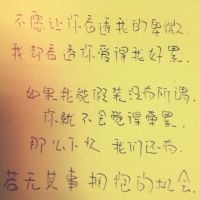 不愿让你看透我的卑微.
我却看透你爱得我好累.
如果我能假装没有所谓.
你就不会觉得疲累.
那么不久 我们还有.
若无其事 拥抱的机会.